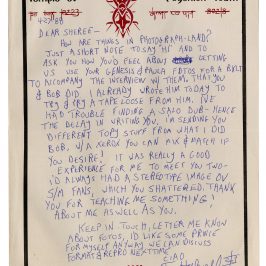 4/27/88
DEAR SHEREE-
HOW ARE THINGS IN PHOTOGRAPH-LAND?
JUST A SHORT NOTE TO SAY 'HI' AND TO
ASK YOU HOW YOU'D FEEL ABOUT LETTING
US USE YOUR GENESIS & PAULA FOTOS FOR A BKLT
TO ACCOMPANY THE INTERVIEW W/ THEM THAT YOU
& BOB DID. I ALREADY WROTE HIM TODAY TO
TRY & PRY A TAPE LOOSE FROM HIM. I'VE
HAD TROUBLE FINDING A SOLO DUB- HENCE
THE DELAY IN WRITING YOU. I'M SENDING YOU
DIFFERENT TOPY STUFF FROM WHAT I DID
BOB, W/A XEROX YOU CAN MIX & MATCH IF
YOU DESIRE! IT WAS REALLY A GOOD
EXPERIENCE FOR ME TO MEET YOU TWO-
I'D ALWAYS HAD A STEREOTYPE IMAGE OV
S/M FANS, WHICH YOU SHATTERED. THANK
YOU FOR TEACHING ME SOMETHING!
ABOUT ME AS WELL AS YOU.
KEEP IN TOUCH, LETTER ME KNOW
ABOUT FOTOS, I'D LIKE SOME
FOR MYSELF ANYWAY. WE CAN DISCUSS
FORMAT & REPRO NEXT TIME
CIAO